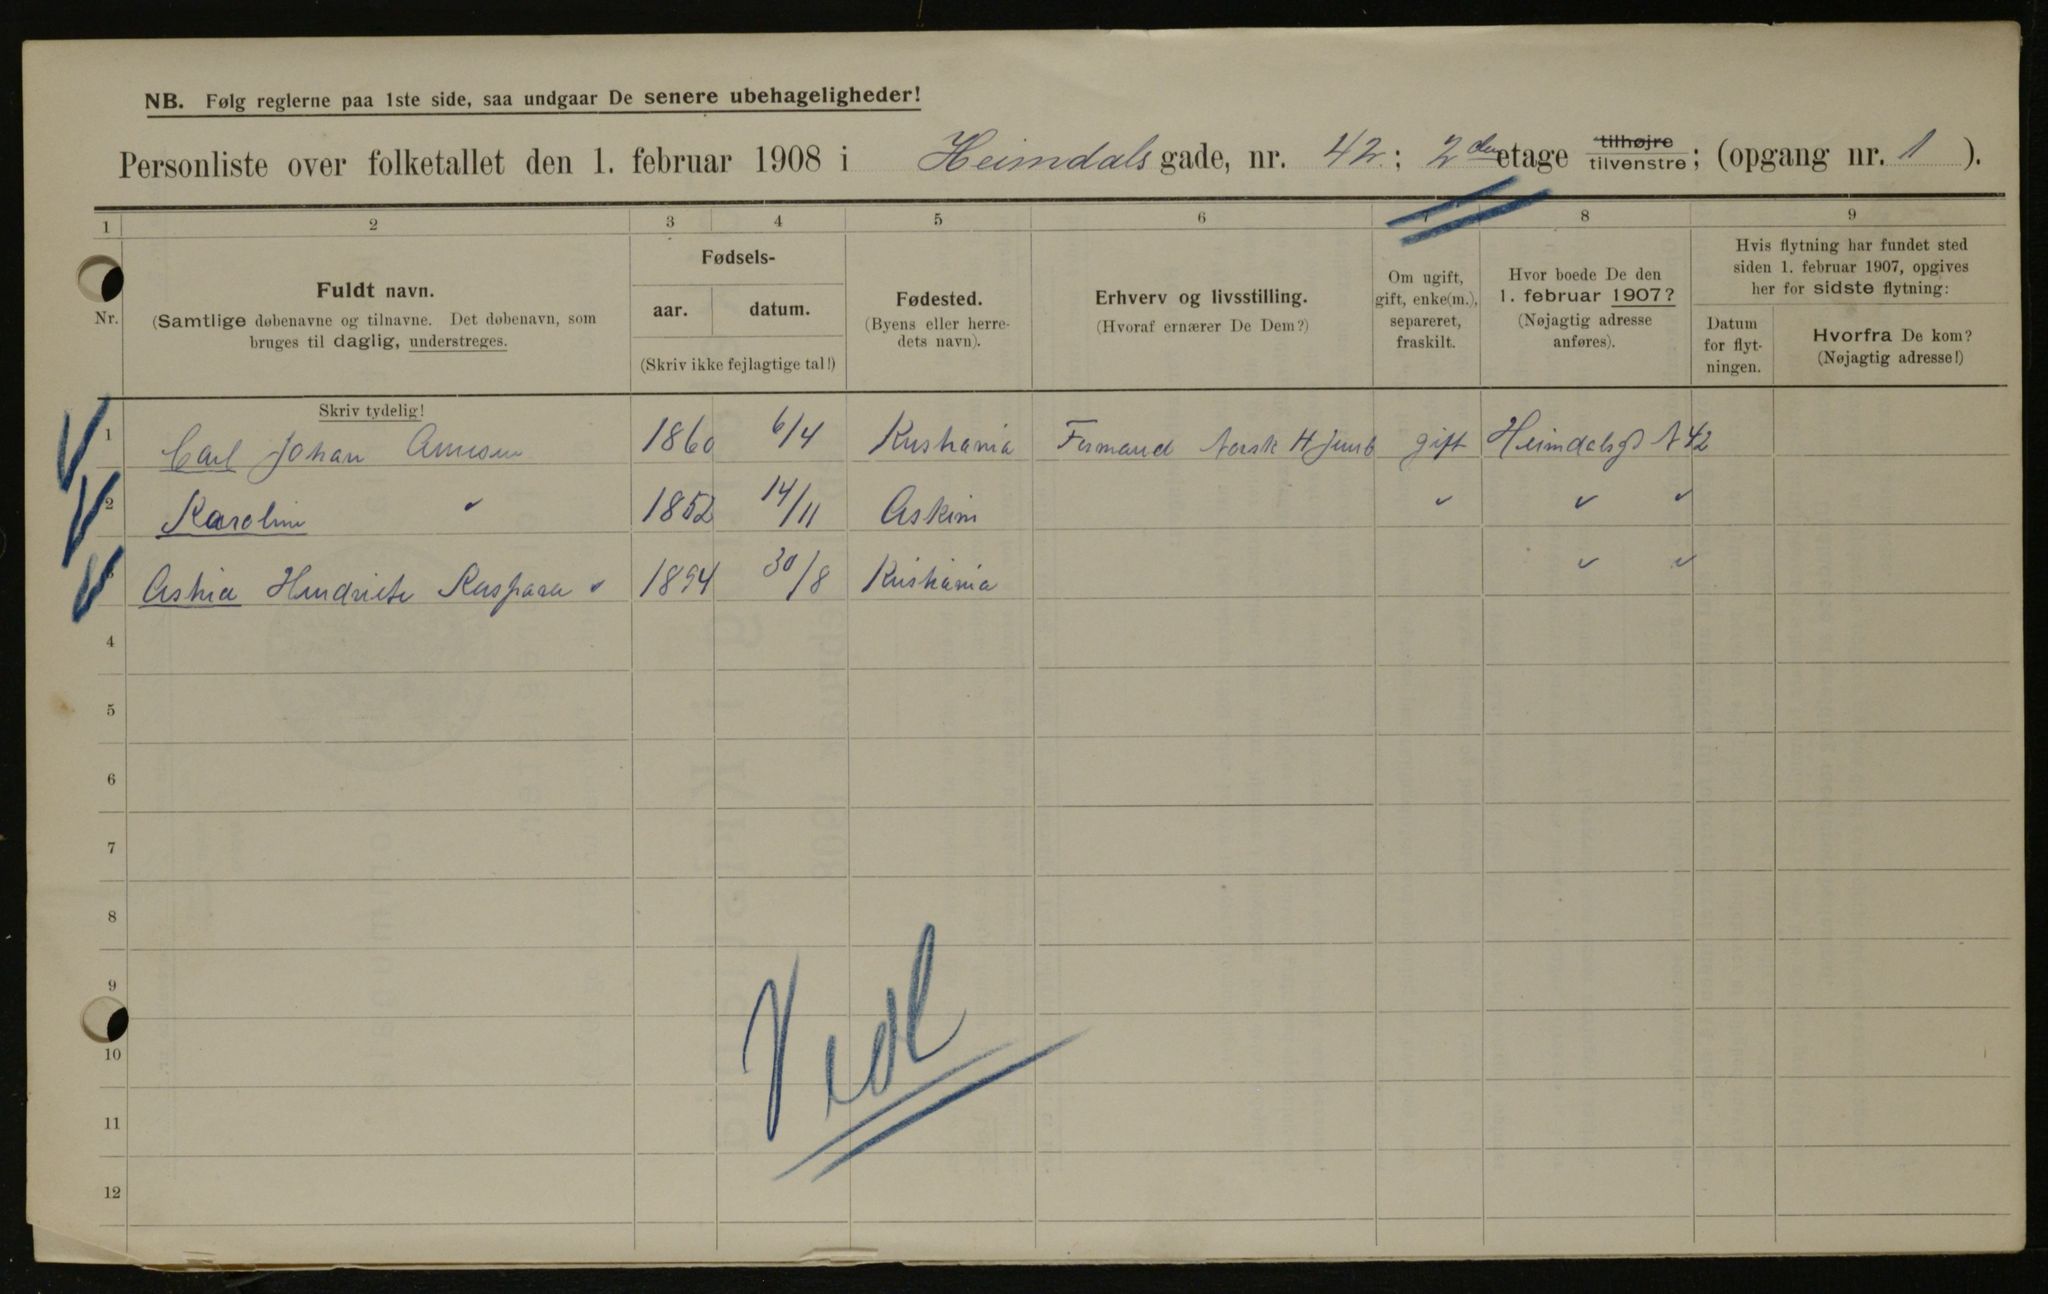 NB. Følg reglerne paa 1ste side, saa undgaar De senere ubehageligheder!
Personliste over folketallet den 1. februar 1908 i Heimdals gade, nr. 42; 2den etage tilhøjre tilvenstre; (opgang nr. 1).
1 2 3 4 5 6 7 8 9
Nr.
Fuldt navn.
(Samtlige døbenavne og tilnavne. Det døbenavn, som
bruges til daglig, understreges.
Fødsels-
aar. datum.
(Skriv ikke fejlagtige tal!)
Fødested.
(Byens eller herre-
dets navn).
Erhverv og livsstilling.
(Hvoraf ernærer De Dem?)
Om ugift,
gift, enke(m.),
separeret,
fraskilt.
Hvor boede De den
1. februar 1907?
(Nøjagtig adresse
anføres).
Hvis flytning har fundet sted
siden 1. februar 1907, opgives
her for sidste flytning:
Datum
for flyt-
ningen.
Hvorfra De kom?
(Nøjagtig adresse!)
Skriv tydelig!
1 Carl Johan 1860 6/4 Kristiania Formand Norsk gift Heimdalsgd N 42
2 Karoline " 1852 14/11 Askim " " "
3 Henriette 1894 30/8 Kristiania " "
4
5
6
7
8
9
10
11
12